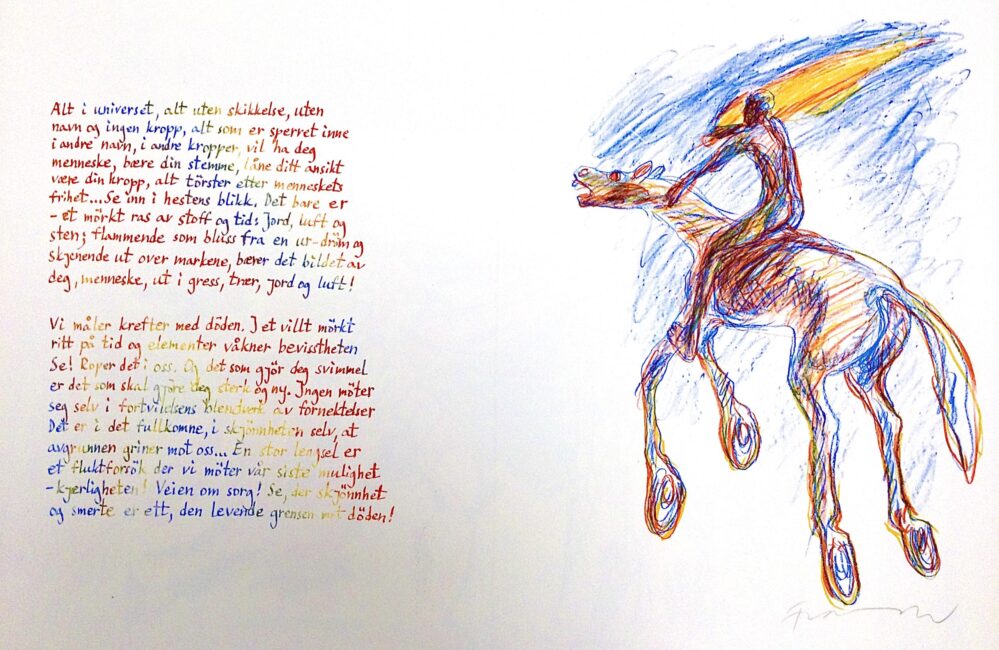 Alt i universet, alt uten skikkelse, uten
navn og ingen kropp, alt som er sperret inne
i andre navn, i andre kropper, vil ha deg
menneske, bære din stemme, låne ditt ansikt
være din kropp, alt törster etter menneskets
frihet... Se inn i hestens blikk. Det bare er
- et mörkt ras av stoff og tid: Jord, luft og
sten; flammende som bluss fra en ur-dröm og
skjenende ut over markene, bærer det bildet av
deg, menneske, ut i gress, trær, jord og luft!
Vi måler krefter med döden. I et villt mörkt
ritt på tid og elementer våkner bevisstheten
Se! Roper det i oss. Og det som gjör deg svimmel
er det som skal gjöre deg sterk og ny. Ingen möter
seg selv i fortvilelsens blendverk av fornektelser
Det er i det fullkomne, i skjönnheten selv, at
avgrunnen griner mot oss... En stor lengsel er
et fluktforsök der vi möter vår siste mulighet
- kjærligheten! Veien om sorg! Se, der skjönnhet
og smerte er ett, den levende grensen mot döden!